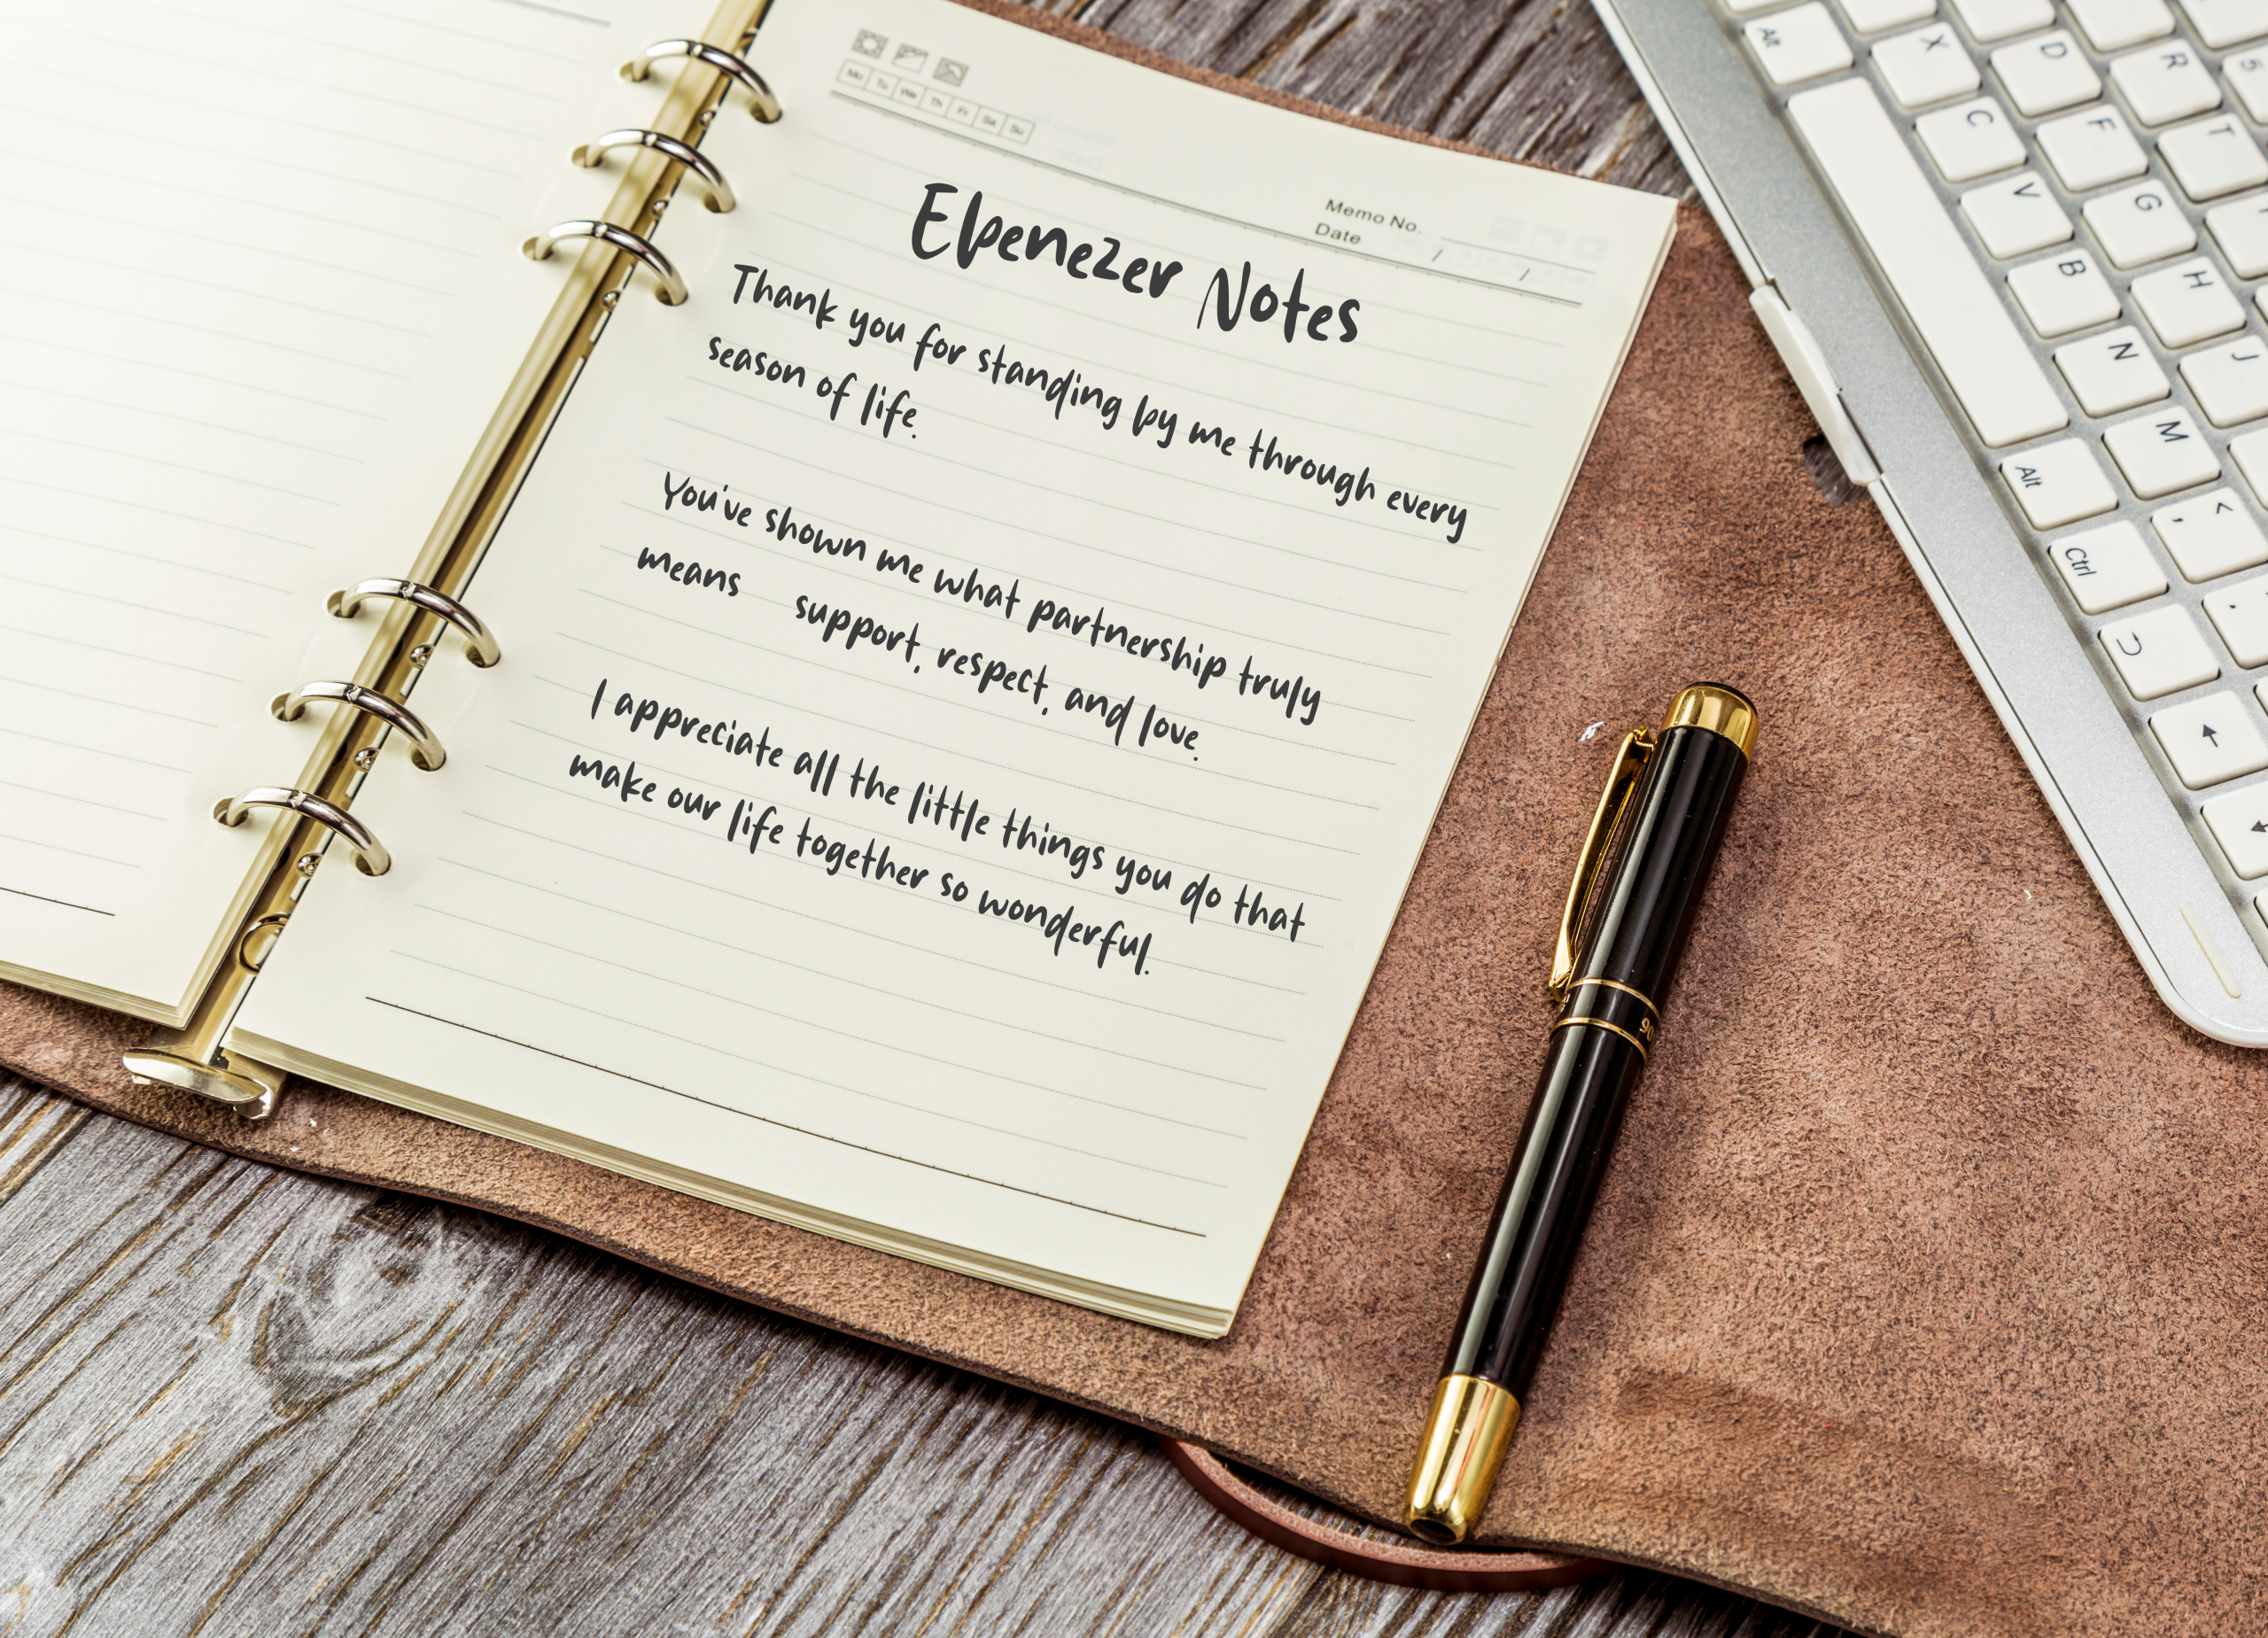 Mo Tu We Th Fr Sa Su
Memo No.
Date / /
Ebenezer Notes
Thank you for standing by me through every
season of life.
You've shown me what partnership truly
means support, respect, and love.
I appreciate all the little things you do that
make our life together so wonderful.
Alt X D R 5
C F T
V G
B H
N J
Alt M
Ctrl , <
.